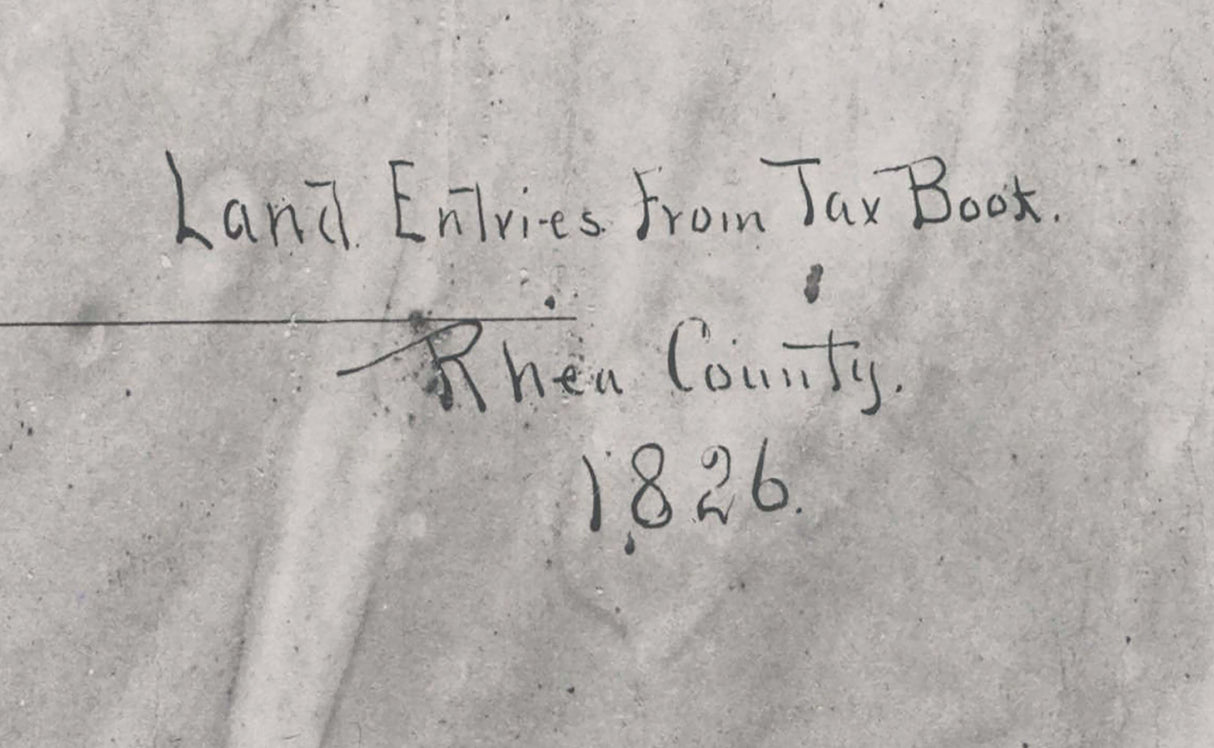 Land Entries From Tax Book.
Rhea County.
1826.